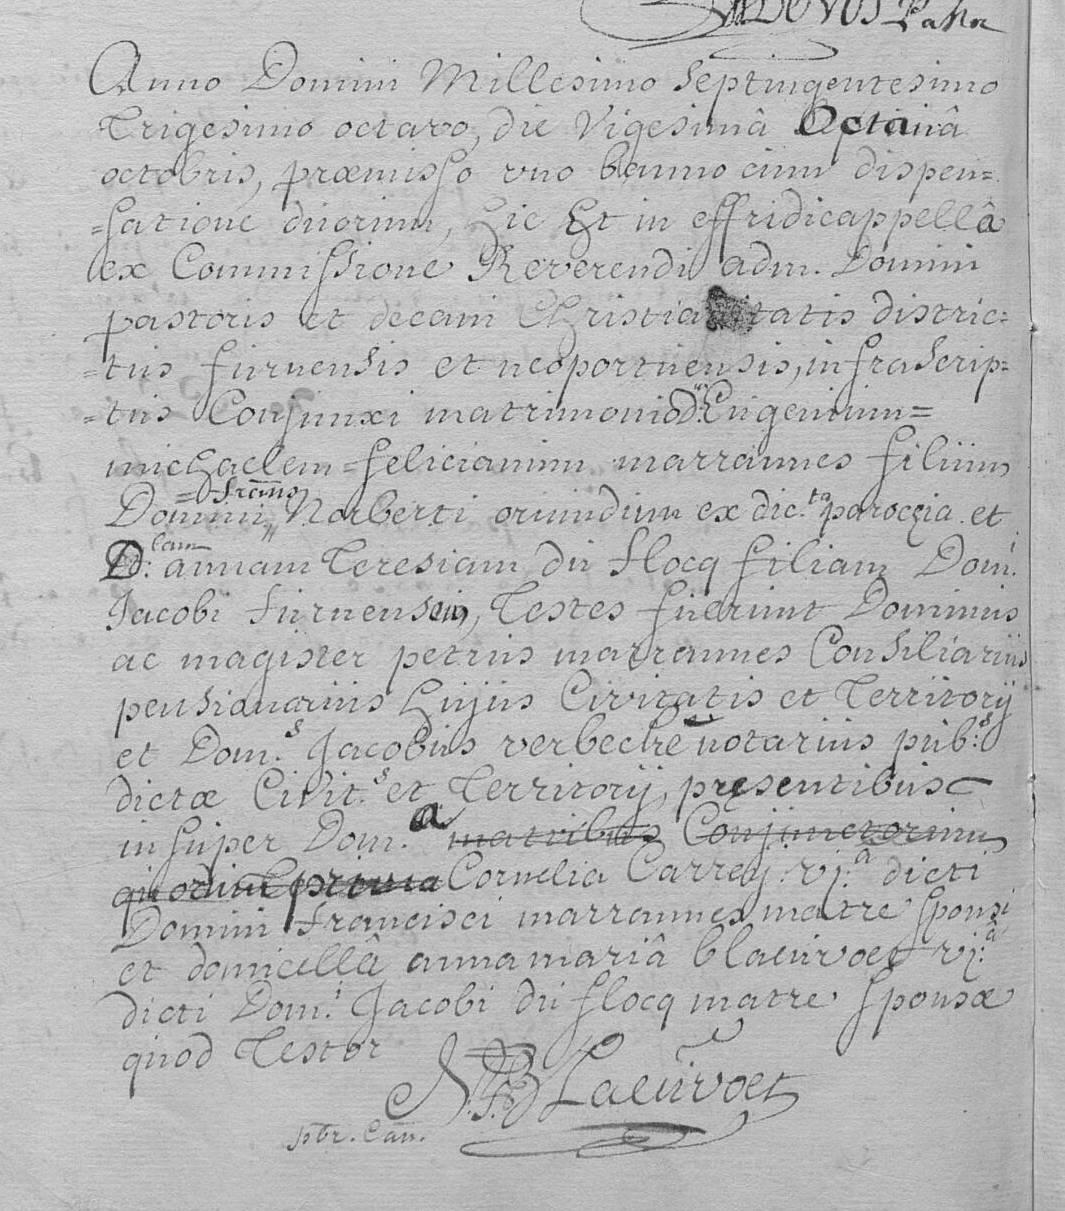 Pastor
Anno Domini Millesimo Septingentesimo
Trigesimo octavo, die Vigesimâ Octavâ
octobris, præmisso uno banno cum dispen=
=satione duorum, hic Et in effridicappellâ
ex Commissione Reverendi adm. Domini
pastoris et decani Christianitatis distric=
=tus furnensis et neoportuensis, infrascrip=
=tus Conjunxi matrimonio D: Eugenium=
michaelem=felicianum marrannes filium
Domini =franc Norberti oriundum ex dic.ta parochia et
D:lam annam Teresiam du flocq filiam Dom.i
Jacobi furnensem, Testes fuerunt Dominus
ac magister petrus marrannes Consiliarius
pensionarius hujus Civitatis et Territorij
et Dom.s Jacobus verbeche notarius pub:s
dictæ Civit.s et Territorij, presentibus
insuper Dom.a matribus Conjunctorum
quorum prima Cornelia Carrey: vi:a dicti
Domini francisci marrannes matre sponsi
et domicellâ annamariâ blauvoet vi:a
dicti Dom.i Jacobi du flocq matre sponsæ
quod Testor
N:F:Blauvoet
pbr. Can.